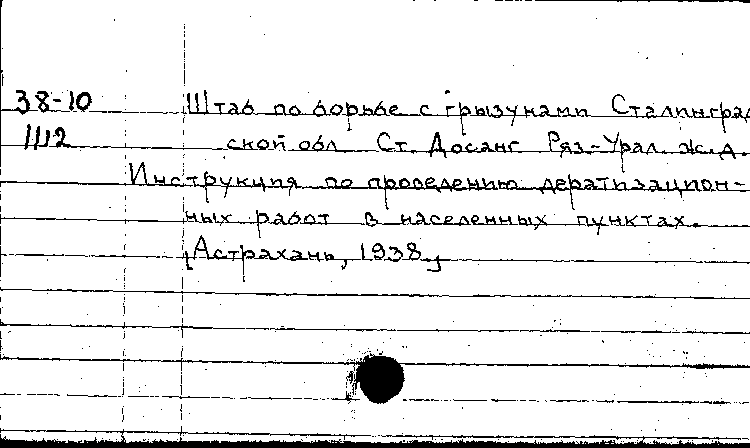 38-10 Штаб по борьбе с грызунами Сталинград
1112 ской обл. Ст. Досанг Ряз.-Урал. ж.д.
Инструкция по проведению дератизацион-
ных работ в населенных пунктах.
[Астрахань, 1938]